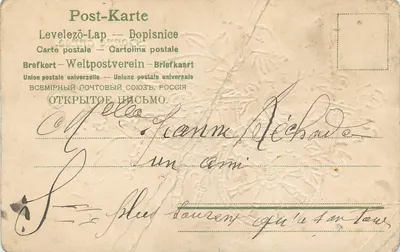 Post-Karte
Levelező-Lap — Dopisnice
Carte postale — Cartolina postale
Brefkort — Weltpostverein — Briefkaart
Union postale universelle — Unione postale universale
ВСЕМІРНЫЙ ПОЧТОВЫЙ СОЮЗЪ, РОССІЯ
ОТКРЫТОЕ ПИСЬМО.
Mlle Jeanne
un ami
plus souvent qu'à son tour